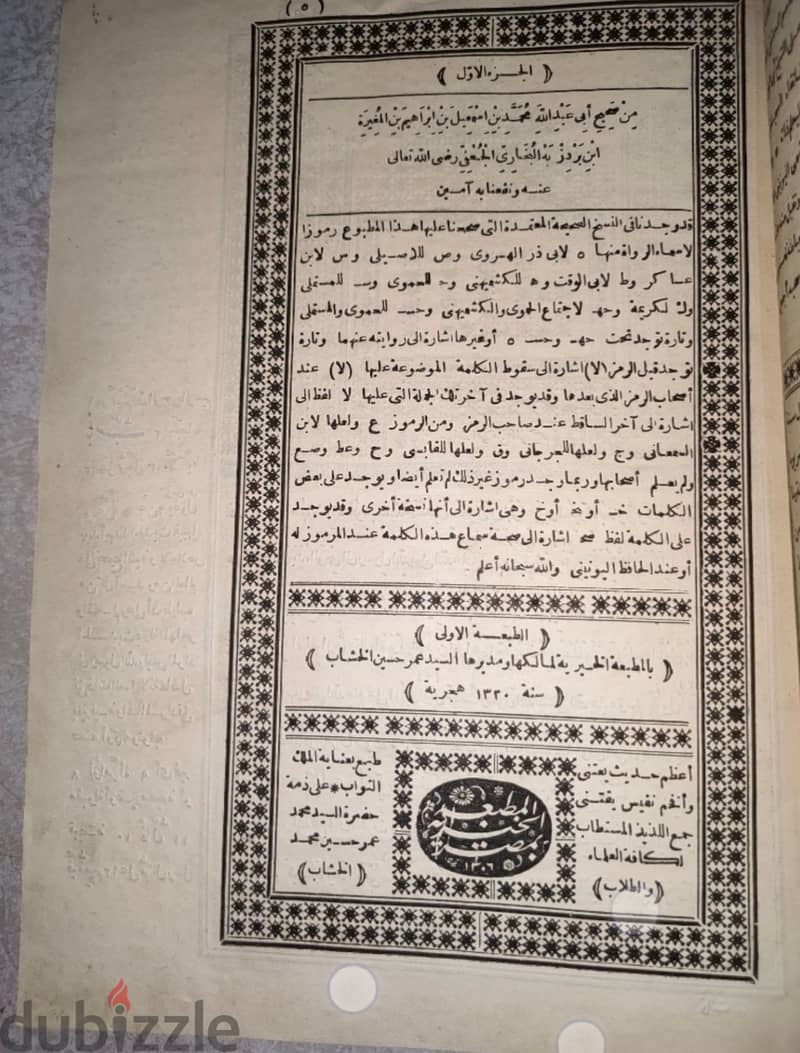 (٥)
﴿ الجزء الاوّل ﴾
مِنْ صَحِيحِ أَبِي عَبْدِ اللهِ مُحَمَّدِ بْنِ اِسْمٰعِيلَ بْنِ اِبْرَاهِيمَ بْنِ المُغِيرَةِ
ابْنِ بَرْدِزْبَهْ البُخَارِيِّ الجُعْفِيِّ رضى الله تعالى
عنه ونفعنا به آمين
قد وجدنا فى النسخ الصحيحة المعتمدة التى صححنا عليها هذا المطبوع رموزا
لاسماء الرواة منها ه لابى ذر الهروى وص للاصيلى وس لابن
عساكر وط لابى الوقت وه للكشميهنى وحـ للحموى وسـ للمستملى
وك لكريمة وحهـ لاجتماع الحموى والكشميهنى وحسـ للحموى والمستملى
وتارة توجد تحت حهـ وحسـ ه أو غيرها اشارة الى روايته عنهما وتارة
توجد قبل الرمز (لا) اشارة الى سقوط الكلمة الموضوعة عليها (لا) عند
أصحاب الرمز الذى بعدها وقد يوجد فى آخر تلك الجملة التى عليها لا لفظ الى
اشارة الى آخر الساقط عند صاحب الرمز ومن الرموز ع ولعلها لابن
السمعانى وج ولعلها للجرجانى وق ولعلها للقابسى وح وعط وصع
ولم يعلم أصحابها وربما وجد رموز غير ذلك لم تعلم أيضا ويوجد على بعض
الكلمات خـ أو نخـ أوخ وهى اشارة الى أنها نسخة أخرى وقد يوجد
على الكلمة لفظ صح اشارة الى صحة سماع هذه الكلمة عند المرموز له
أو عند الحافظ اليونينى والله سبحانه أعلم
﴿ الطبعة الاولى ﴾
﴿ بالمطبعة الخيرية لمالكها ومديرها السيد عمر حسين الخشاب ﴾
﴿ سنة ١٣٢٠ هجرية ﴾
أعظم حديث يعتنى
وأفخم نفيس يقتنى
جمع اللذيذ المستطاب
لكافة العلماء
﴿والطلاب﴾
المطبعة
الخيرية
بمصر
١٣٠٦
طبع بعناية الملك
التواب * على ذمة
حضرة السيد محمد
عمر حسين محمد
﴿الخشاب﴾
dubizzle